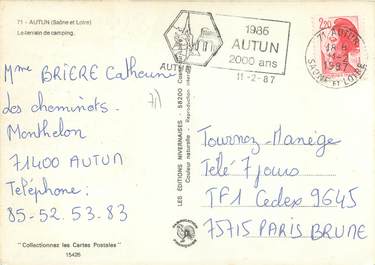 71 - AUTUN (Saône et Loire)
Le terrain de camping.
Mme BRIERE Catherine
des cheminots.
Monthelon
71400 AUTUN
Téléphone:
85-52.53.83
"Collectionnez les Cartes Postales"
15426
LES ÉDITIONS NIVERNAISES - 58200
Couleur naturelle - Reproduction interdite
AUTUN
1985
AUTUN
2000 ans
11-2-87
2,20
71 AUTUN
18 H
11-2
1987
SAONE ET LOIRE
Tournez-Manège
Télé 7 jours
TF1 Cedex 9645
75715 PARIS BRUNE